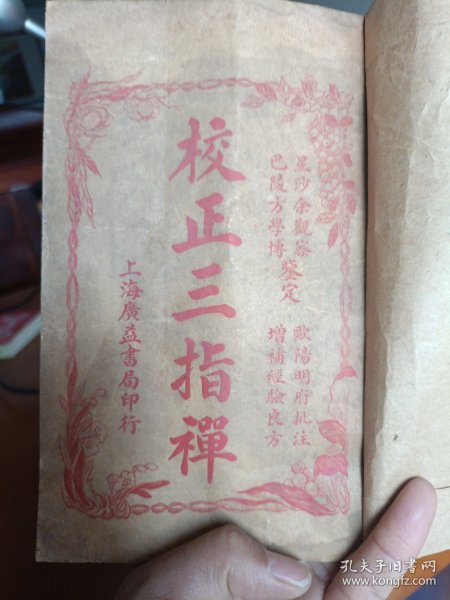 星沙余觀察
巴陵方學博
鑒定
歐陽明府批注
增補經驗良方
校正三指禪
上海廣益書局印行
孔夫子旧书网
www.kongfz.com